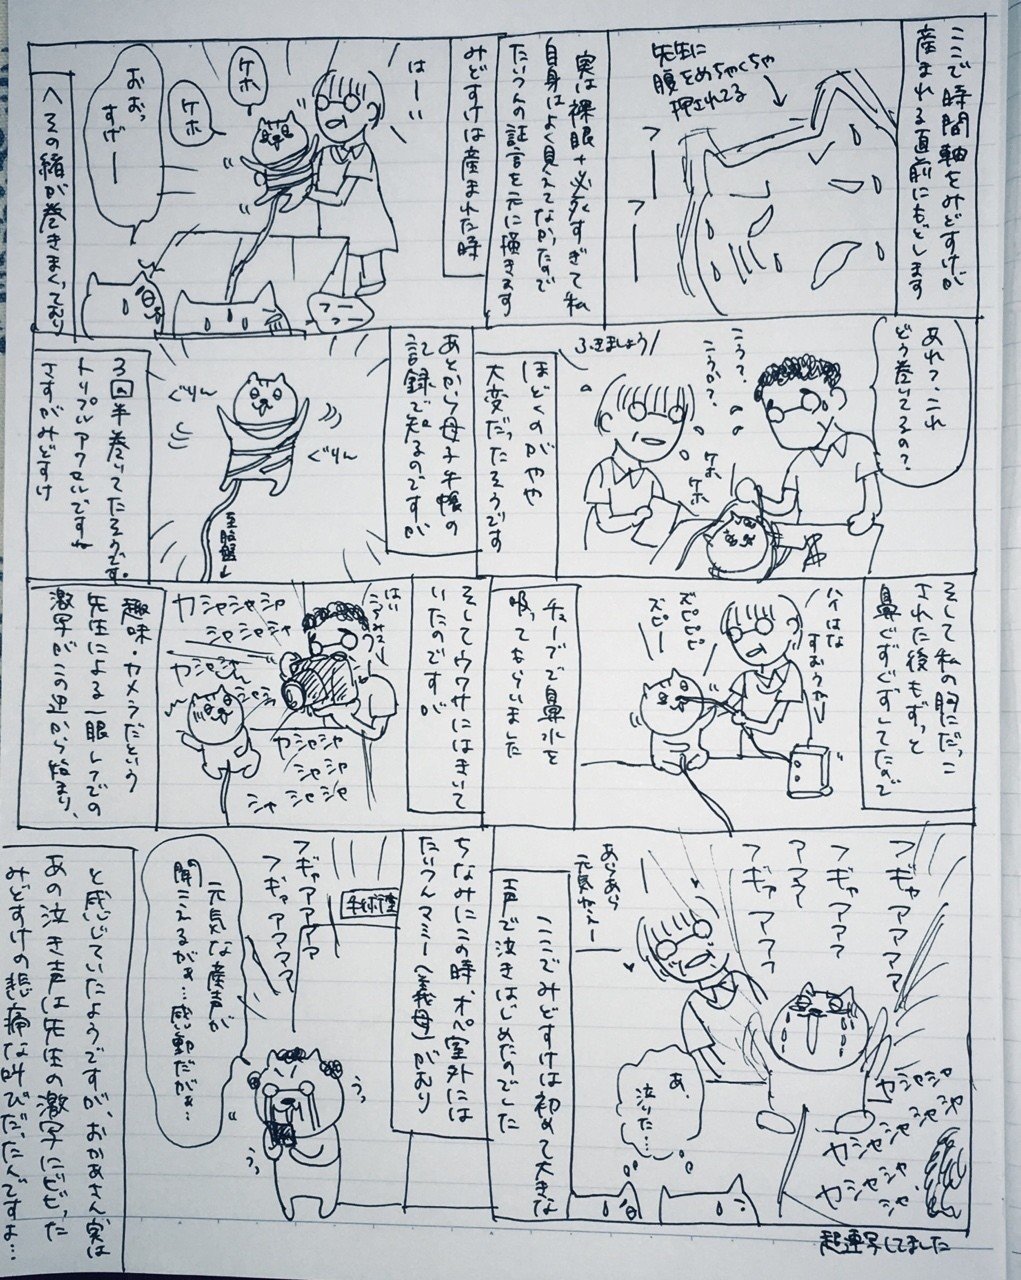 ここで時間軸をみどすけが
産まれる直前にもどします
先生に
腹をめちゃくちゃ
押されてる
フーー
フーー
実は裸眼+必死すぎて私
自身はよく見えてなかったので
たいつんの証言を元に描きます
みどすけは産まれた時
はーい
ケホ
ケホ
おおっ
すげー
フーフー
へその緒が巻きまくっており
あれ?これ
どう巻いてるの?
こう?
こうか?
ふきましょう
ケホ
ケホ
ほどくのがやや
大変だったそうです
あとから母子手帳の
記録で知るのですが
ぐりん
ぐりん
至胎盤
3回半巻いてたそうです。
トリプルアクセルですね
さすがみどすけ
そして私の胸にだっこ
された後もずっと
鼻ぐずぐずしてたので
ハイはな
すおうかー
ズピピピ
ズピー
チューブで鼻水を
吸ってもらいました
そしてウワサにはきいて
いたのですが
はい
こっちみてー
カシャシャシャ
シャシャシャ
カシャシャ
シャシャ
カシャシャ
シャシャ
シャシャシャ
趣味・カメラだという
先生による一眼レフでの
激写がこの辺から始まり、
フギャアアアア
フギャアアア
アアアー
フギャアアアア
カシャシャ
シャシャシャ
カシャシャシャ
カシャシャ
シャ
超連写してました
あらあら
元気ねえー
あ、
泣いた…
ここでみどすけは初めて大きな
声で泣きはじめたのでした
ちなみにこの時オペ室外には
たいつんマミー(義母)がおり
手術室
フギャアアアア
フギャアアアア
元気な産声が
聞こえるがぁ…感動だがぁ…
うっ
うっ
と感じていたようですが、おかあさん、実は
あの泣き声は先生の激写にビビった
みどすけの悲痛な叫びだったんですよ…